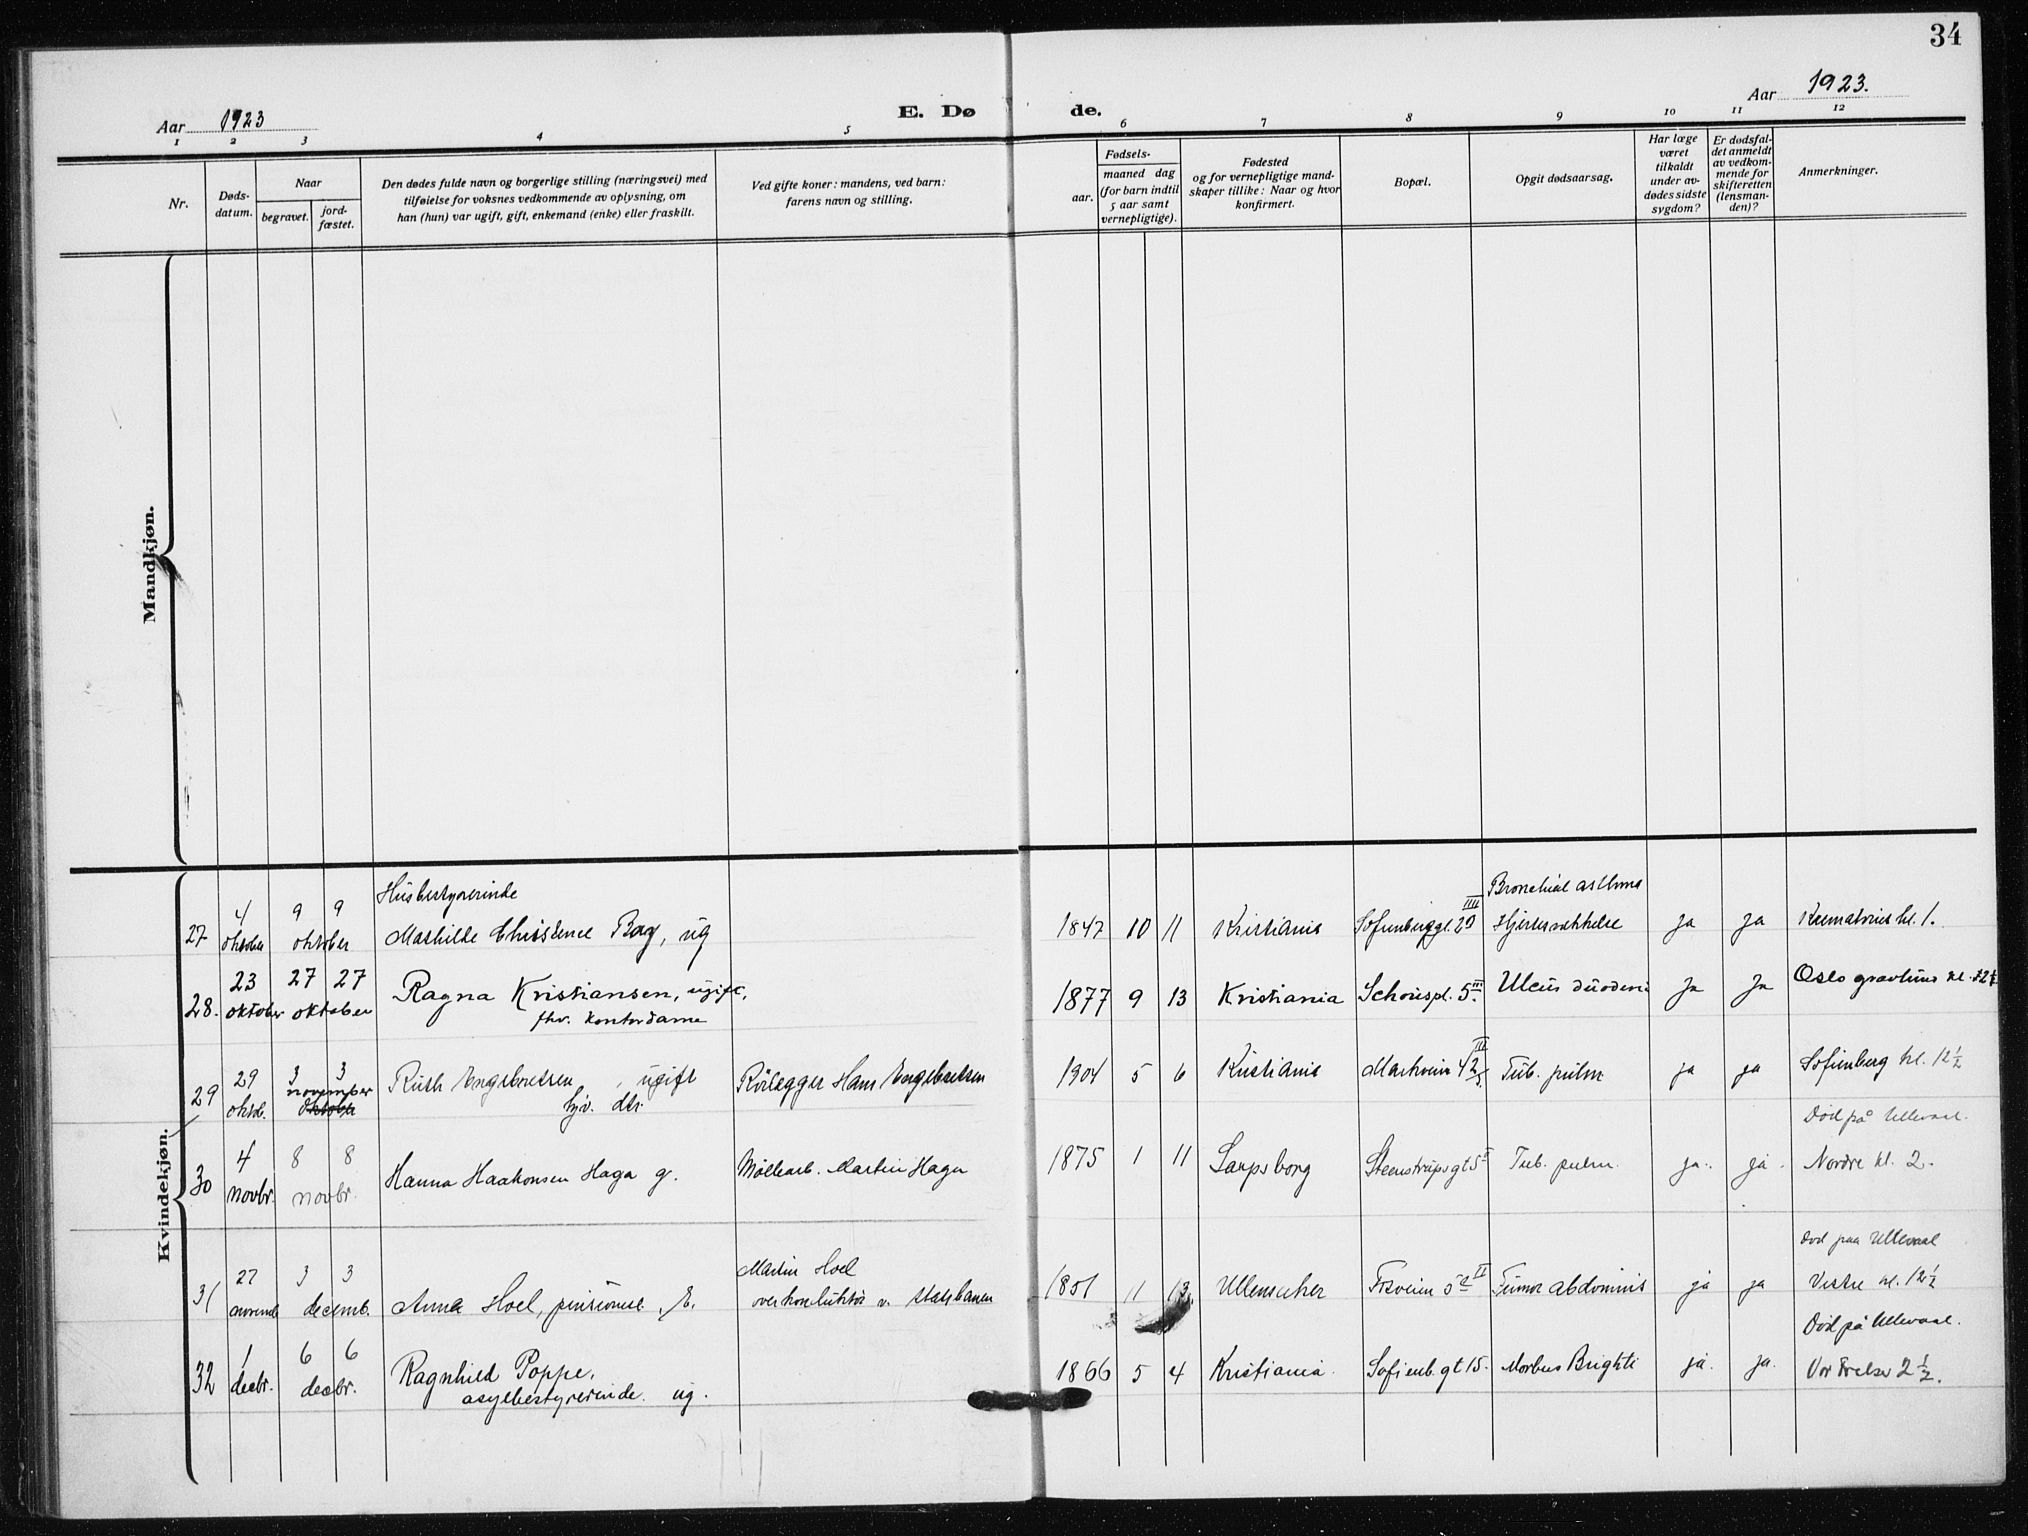 34
Aar 1923
E. Dø de.
Aar 1923.
1 2 3 4 5 6 7 8 9 10 11 12
Nr.
Døds-
datum.
Naar
begravet.
jord-
fæstet.
Den dødes fulde navn og borgerlige stilling (næringsvei) med
tilføielse for voksnes vedkommende av oplysning, om
han (hun) var ugift, gift, enkemand (enke) eller fraskilt.
Ved gifte koner: mandens, ved barn:
farens navn og stilling.
Fødsels-
aar.
maaned dag
(for barn indtil
5 aar samt
vernepligtige).
Fødested
og for vernepligtige mand-
skaper tillike: Naar og hvor
konfirmert.
Bopæl.
Opgit dødsaarsag.
Har læge
været
tilkaldt
under av-
dødes sidste
sygdom?
Er dødsfal-
det anmeldt
av vedkom-
mende for
skifteretten
(lensman-
den)?
Anmerkninger.
Mandkjøn.
Kvindekjøn.
Husbestyrerinde
Bronchial asthma
4 9 9
27 oktober oktober Mathilde Bay, ug 1847 10 11 Kristiania 29 IIII ja ja kl. 1.
23 27 27
28. oktober oktober Ragna Kristiansen, ugift, 1877 9 13 Kristiania Schouspl. 5 III Ulcus duodeni ja ja Oslo gravlund kl.
fhv. kontordame
29 3 3
29 oktob. november oktober Ruth Engebretsen, ugift Rörlegger Hans Engebretsen 1904 5 6 Kristiania Markvein 42 III Tub. pulm ja ja Sofienberg kl. 12 1/2
hjv. dtr.
Död på Ullevaal.
4 8 8
30 novbr. novbr. Hanna Haakonsen Haga g. Möllearb. Martin Haga 1875 1 11 Sarpsborg Steenstrupsgt 5 I Tub. pulm. ja. ja. Nordre kl. 2.
Död paa Ullevaal
27 3 3
Martin Hoel
31 decemb. Anna Hoel, E. overkonduktör v. statsbanen 1851 11 13 Ullensaker 5 II Tumor abdominis ja ja Vestre kl. 12 1/2
Död på Ullevaal.
1 6 6
32 decbr. decbr. Ragnhild Poppe, 1866 5 4 Kristiania. Sofienb.gt 15. Morbus Brighti ja. ja. Vor Frelser 2 1/2.
asylbestyrerinde. ug.